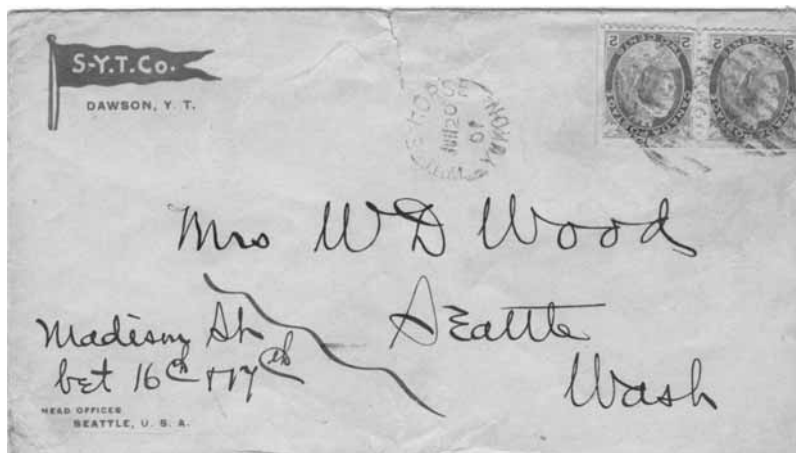 S-Y.T.Co.
DAWSON, Y. T.
2 2 2 2
Mrs W D Wood
Seattle
Wash
Madison St
bet 16th & 17th
HEAD OFFICE
SEATTLE, U. S. A.